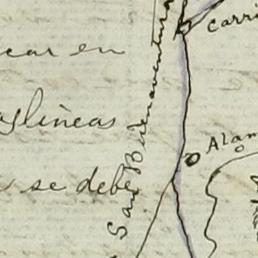 car en
as líneas
se debe
San Buenaventura
Carri
Alam